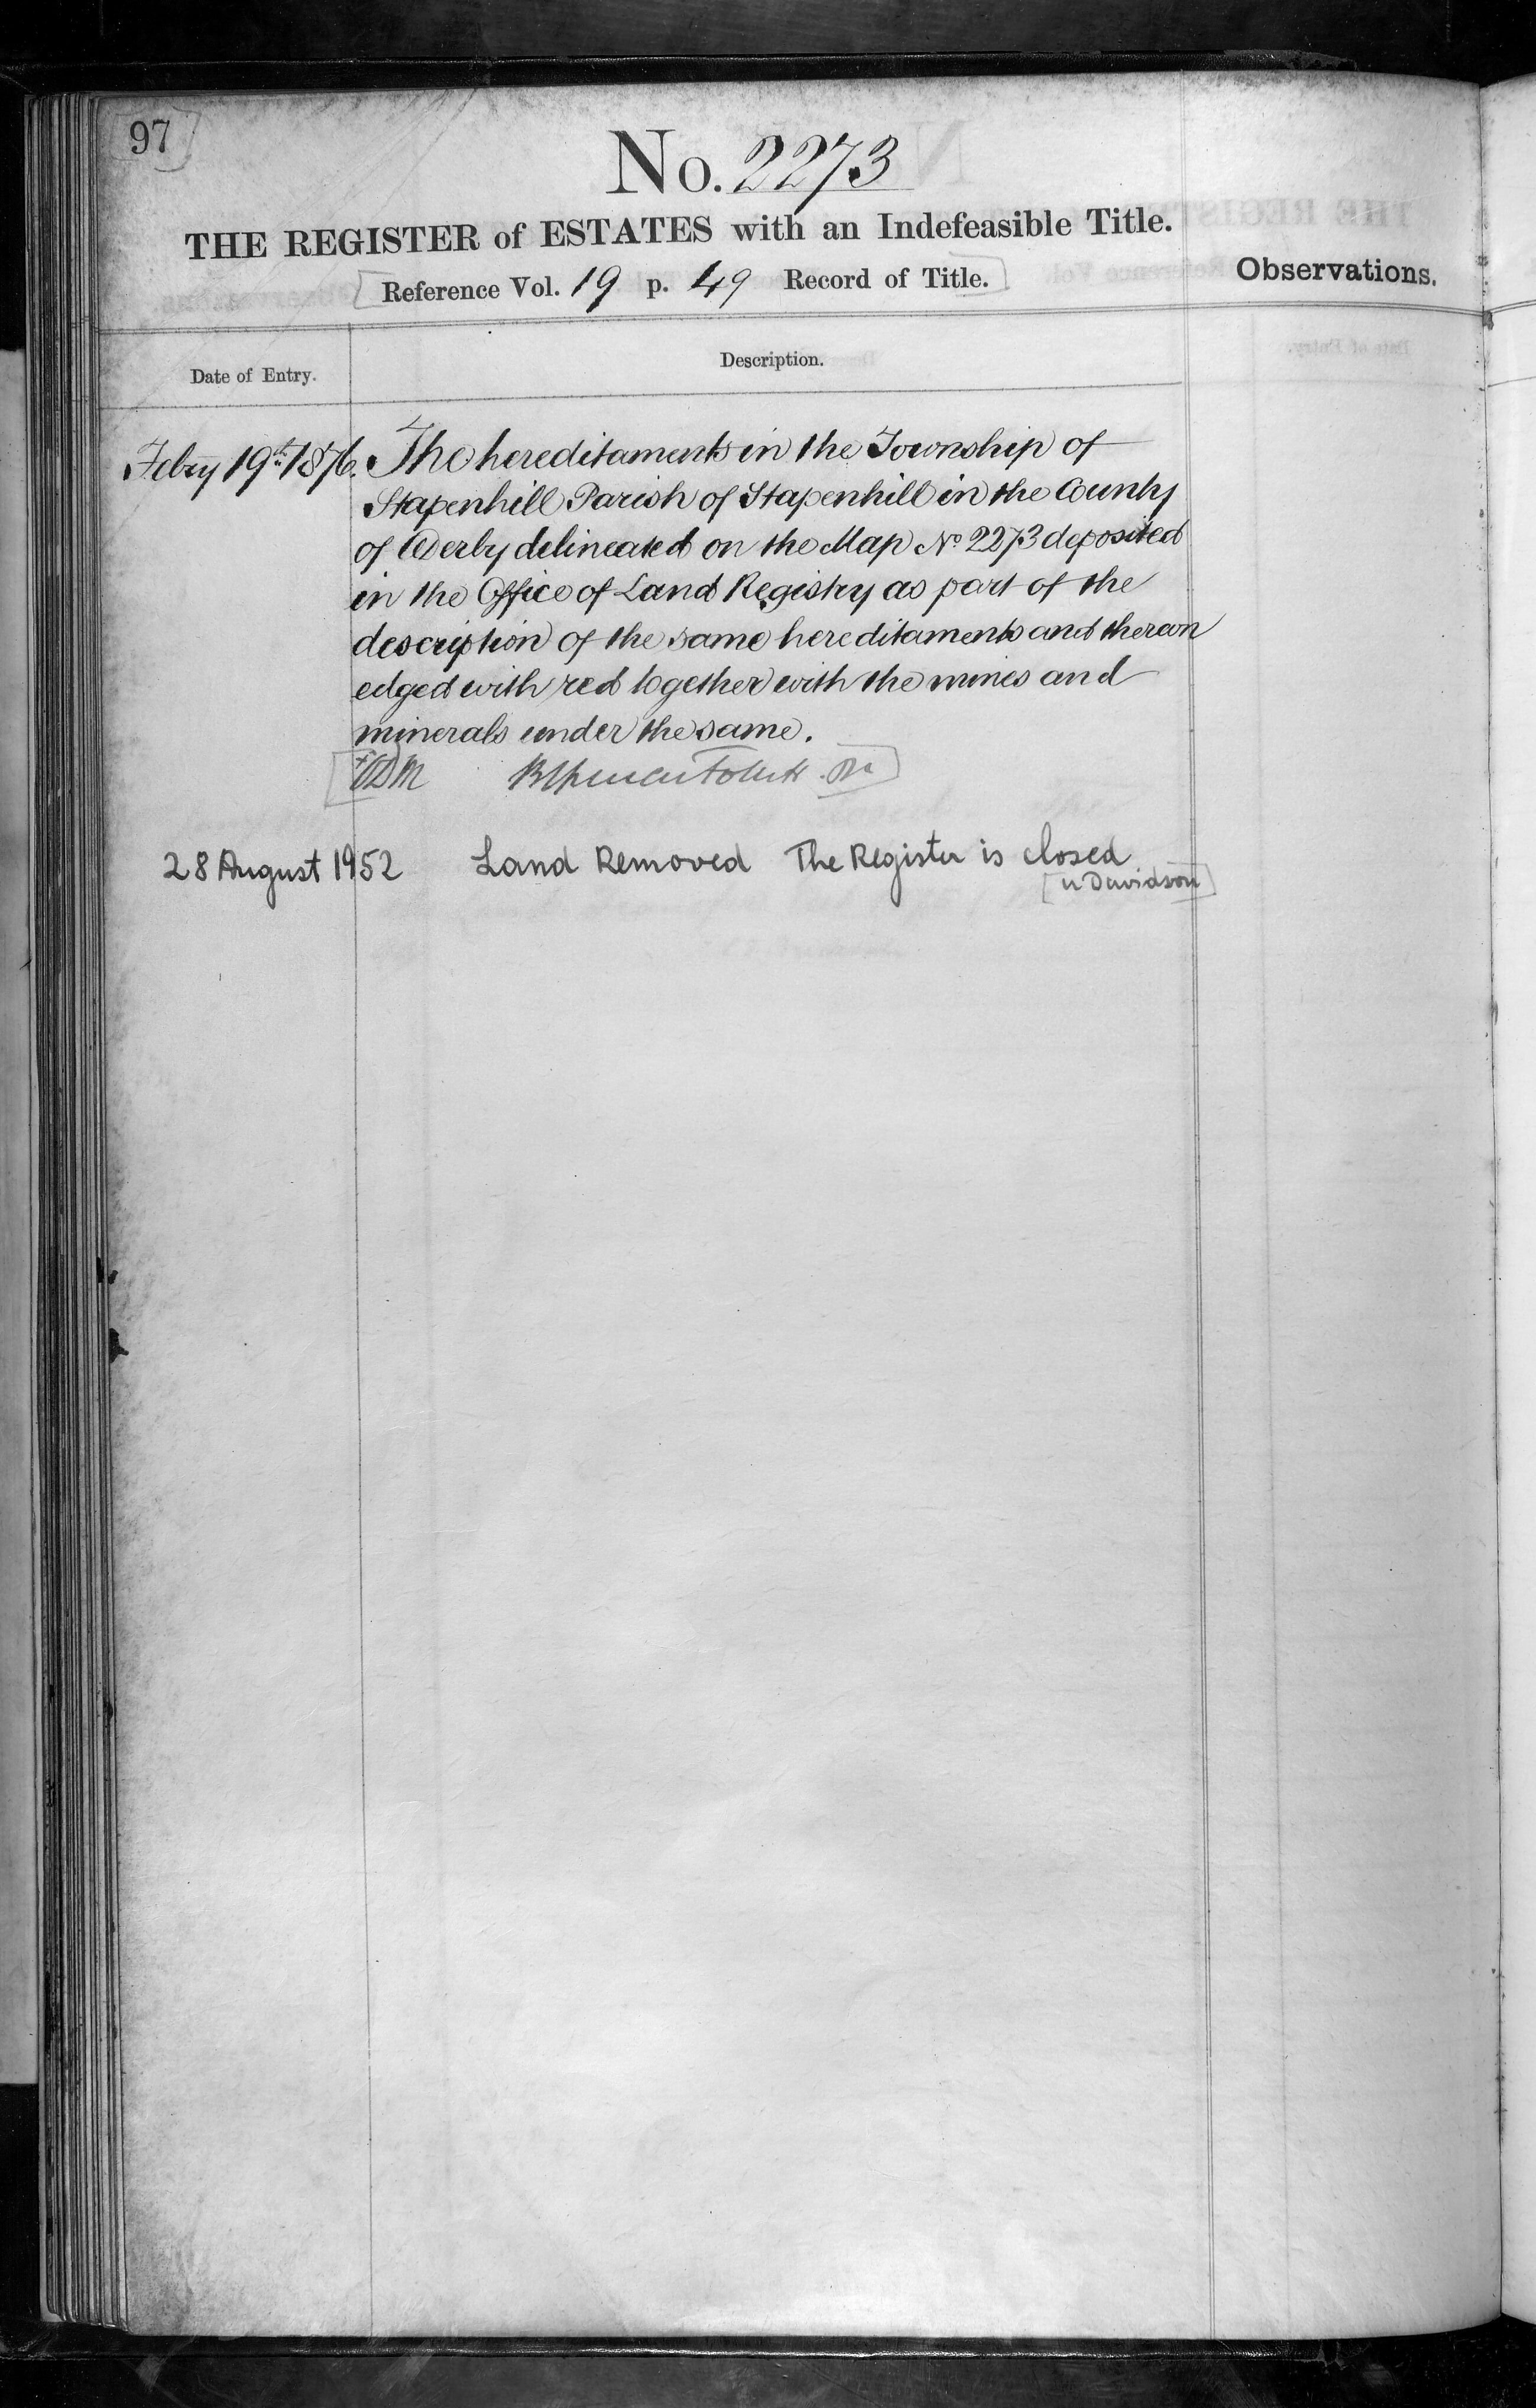 97
No. 2273
THE REGISTER of ESTATES with an Indefeasible Title.
Reference Vol. 19 p. 49 Record of Title.
Observations.
Date of Entry.
Description.
Febry 19th 1876. The hereditaments in the Township of
Stapenhill Parish of Stapenhill in the County
of Derby delineated on the Map No 2273 deposited
in the Office of Land Registry as part of the
description of the same hereditaments and thereon
edged with red together with the mines and
minerals under the same.
28 August 1952 Land Removed The Register is closed
Davidson